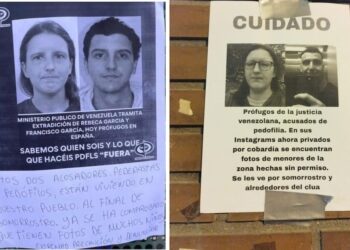 MINISTERIO PUBLICO DE VENEZUELA TRAMITA
EXTRADICIÓN DE REBECA GARCIA Y
FRANCISCO GARCÍA, HOY PRÓFUGOS EN
ESPAÑA.
SABEMOS QUIEN SOIS Y LO QUE
QUE HACÉIS PDFLS "FUERA"
OS DOS ACOSADORES PEDERASTAS
PEDÓFILOS, ESTÁN VIVIENDO EN
UESTRO PUEBLO. AL FINAL DE
OMORROSTRO, YA SE HA COMPROBADO
QUE TIENEN FOTOS DE NUESTROS NIÑOS
CUIDADO
Prófugos de la justicia
venezolana, acusados de
pedofilia. En sus
Instagrams ahora privados
por cobardia se encuentran
fotos de menores de la
zona hechas sin permiso.
Se les ve por somorrostro y
alrededores del clua